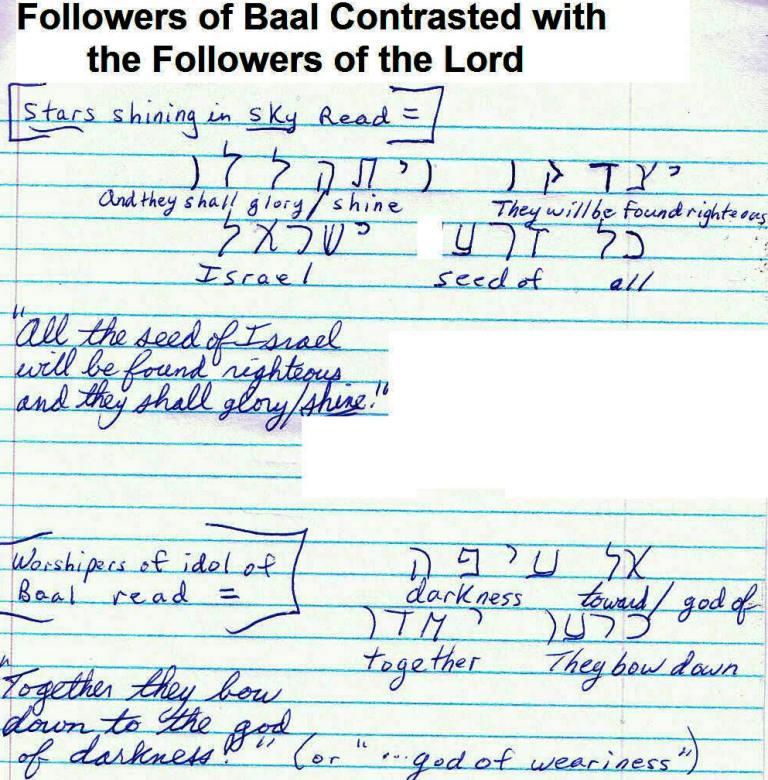 Followers of Baal Contrasted with
the Followers of the Lord
Stars shining in sky Read =
יצדקו ויתהללו
And they shall glory/shine They will be found righteous
כל זרע ישראל
Israel seed of all
"All the seed of Israel
will be found righteous
and they shall glory/shine!"
Worshipers of idol of
Baal read =
אל עיפה
darkness toward/god of
כרעו יחדו
together They bow down
"Together they bow
down to the god
of darkness!" (or "...god of weariness")